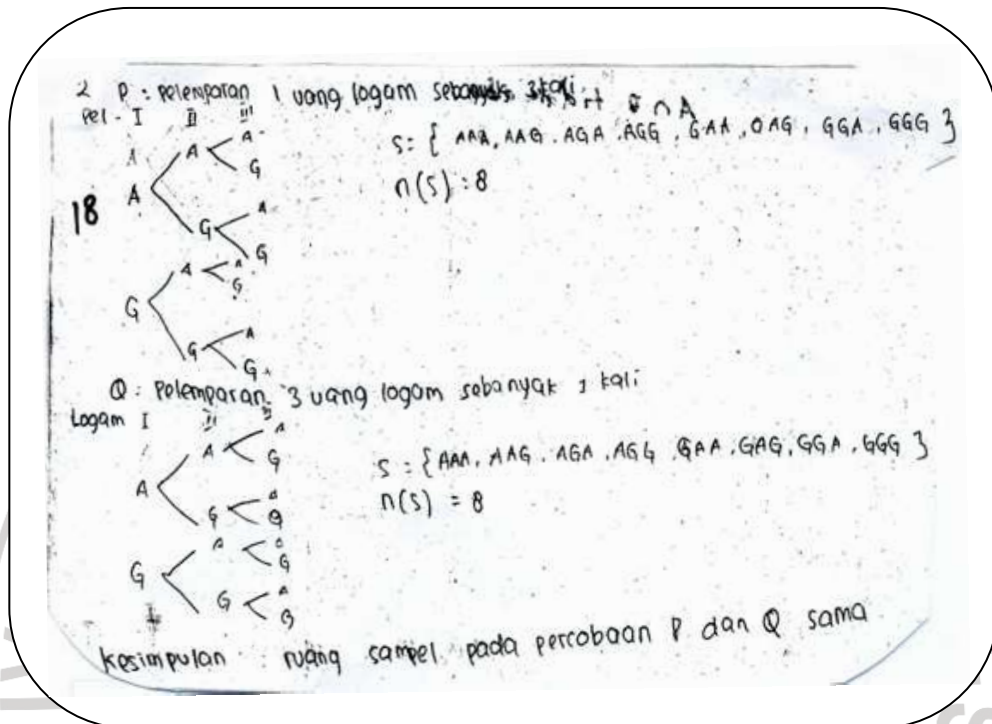 2 P : pelemparan 1 uang logam sebanyak 3 kali
Pel - I II III
S = { AAA, AAG, AGA, AGG, GAA, GAG, GGA, GGG }
n(S) = 8
18
A A A
G
G A
G
G A A
G
G A
G
Q : Pelemparan 3 uang logam sebanyak 1 kali
Logam I II III
S = { AAA, AAG, AGA, AGG, GAA, GAG, GGA, GGG }
n(S) = 8
A A A
G
G A
G
G A A
G
G A
G
Kesimpulan : ruang sampel pada percobaan P dan Q sama